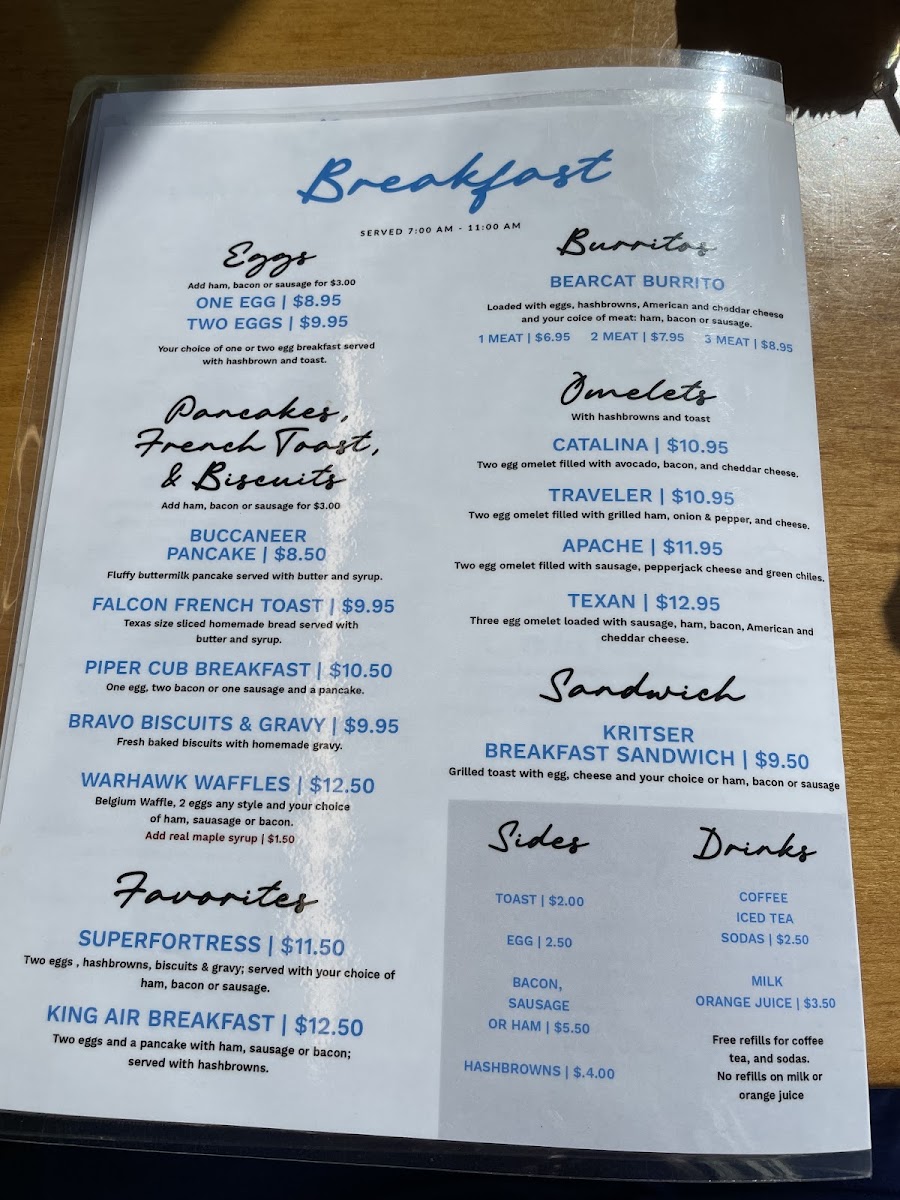 Breakfast
SERVED 7:00 AM - 11:00 AM
Eggs
Add ham, bacon or sausage for $3.00
ONE EGG | $8.95
TWO EGGS | $9.95
Your choice of one or two egg breakfast served
with hashbrown and toast.
Pancakes,
French Toast,
& Biscuits
Add ham, bacon or sausage for $3.00
BUCCANEER
PANCAKE | $8.50
Fluffy buttermilk pancake served with butter and syrup.
FALCON FRENCH TOAST | $9.95
Texas size sliced homemade bread served with
butter and syrup.
PIPER CUB BREAKFAST | $10.50
One egg, two bacon or one sausage and a pancake.
BRAVO BISCUITS & GRAVY | $9.95
Fresh baked biscuits with homemade gravy.
WARHAWK WAFFLES | $12.50
Belgium Waffle, 2 eggs any style and your choice
of ham, sauasage or bacon.
Add real maple syrup | $1.50
Favorites
SUPERFORTRESS | $11.50
Two eggs , hashbrowns, biscuits & gravy; served with your choice of
ham, bacon or sausage.
KING AIR BREAKFAST | $12.50
Two eggs and a pancake with ham, sausage or bacon;
served with hashbrowns.
Burritos
BEARCAT BURRITO
Loaded with eggs, hashbrowns, American and cheddar cheese
and your coice of meat: ham, bacon or sausage.
1 MEAT | $6.95 2 MEAT | $7.95 3 MEAT | $8.95
Omelets
With hashbrowns and toast
CATALINA | $10.95
Two egg omelet filled with avocado, bacon, and cheddar cheese.
TRAVELER | $10.95
Two egg omelet filled with grilled ham, onion & pepper, and cheese.
APACHE | $11.95
Two egg omelet filled with sausage, pepperjack cheese and green chiles.
TEXAN | $12.95
Three egg omelet loaded with sausage, ham, bacon, American and
cheddar cheese.
Sandwich
KRITSER
BREAKFAST SANDWICH | $9.50
Grilled toast with egg, cheese and your choice or ham, bacon or sausage
Sides
TOAST | $2.00
EGG | 2.50
BACON,
SAUSAGE
OR HAM | $5.50
HASHBROWNS | $.4.00
Drinks
COFFEE
ICED TEA
SODAS | $2.50
MILK
ORANGE JUICE | $3.50
Free refills for coffee
tea, and sodas.
No refills on milk or
orange juice